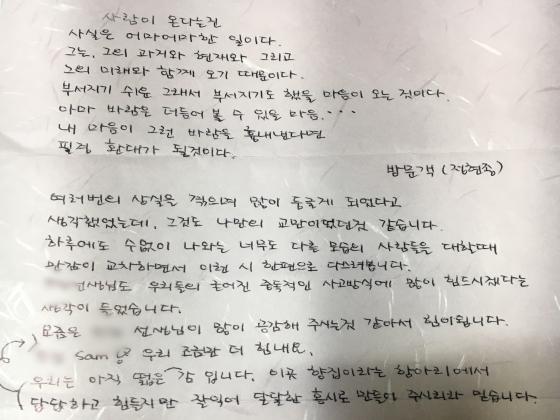 사람이 온다는건
사실은 어마어마한 일이다.
그는, 그의 과거와 현재와 그리고
그의 미래와 함께 오기 때문이다.
부서지기 쉬운 그래서 부서지기도 했을 마음이 오는 것이다.
아마 바람은 더듬어 볼 수 있을 마음. . . .
내 마음이 그런 바람을 흉내낸다면
필경 환대가 될것이다.
방문객 (정현종)
여러번의 상실을 겪으며 많이 둥글게 되었다고
생각했었는데, 그것도 나만의 교만이었던것 같습니다.
하루에도 수없이 나와는 너무도 다른 모습의 사람들을 대할때
만감이 교차하면서 이런 시 한편으로 다스려봅니다.
선생님도 우리들의 굳어진 충동적인 사고방식에 많이 힘드시겠다는
생각이 들었습니다.
요즘은 선생님이 많이 공감해 주시는것 같아서 힘이됩니다.
Sam 님 우리 조금만 더 힘내요.
우리는 아직 떫은 감 입니다. 이곳 항집이라는 항아리에서
답답하고 힘들지만 잘익어 달달한 홍시로 만들어 주시리라 믿습니다.